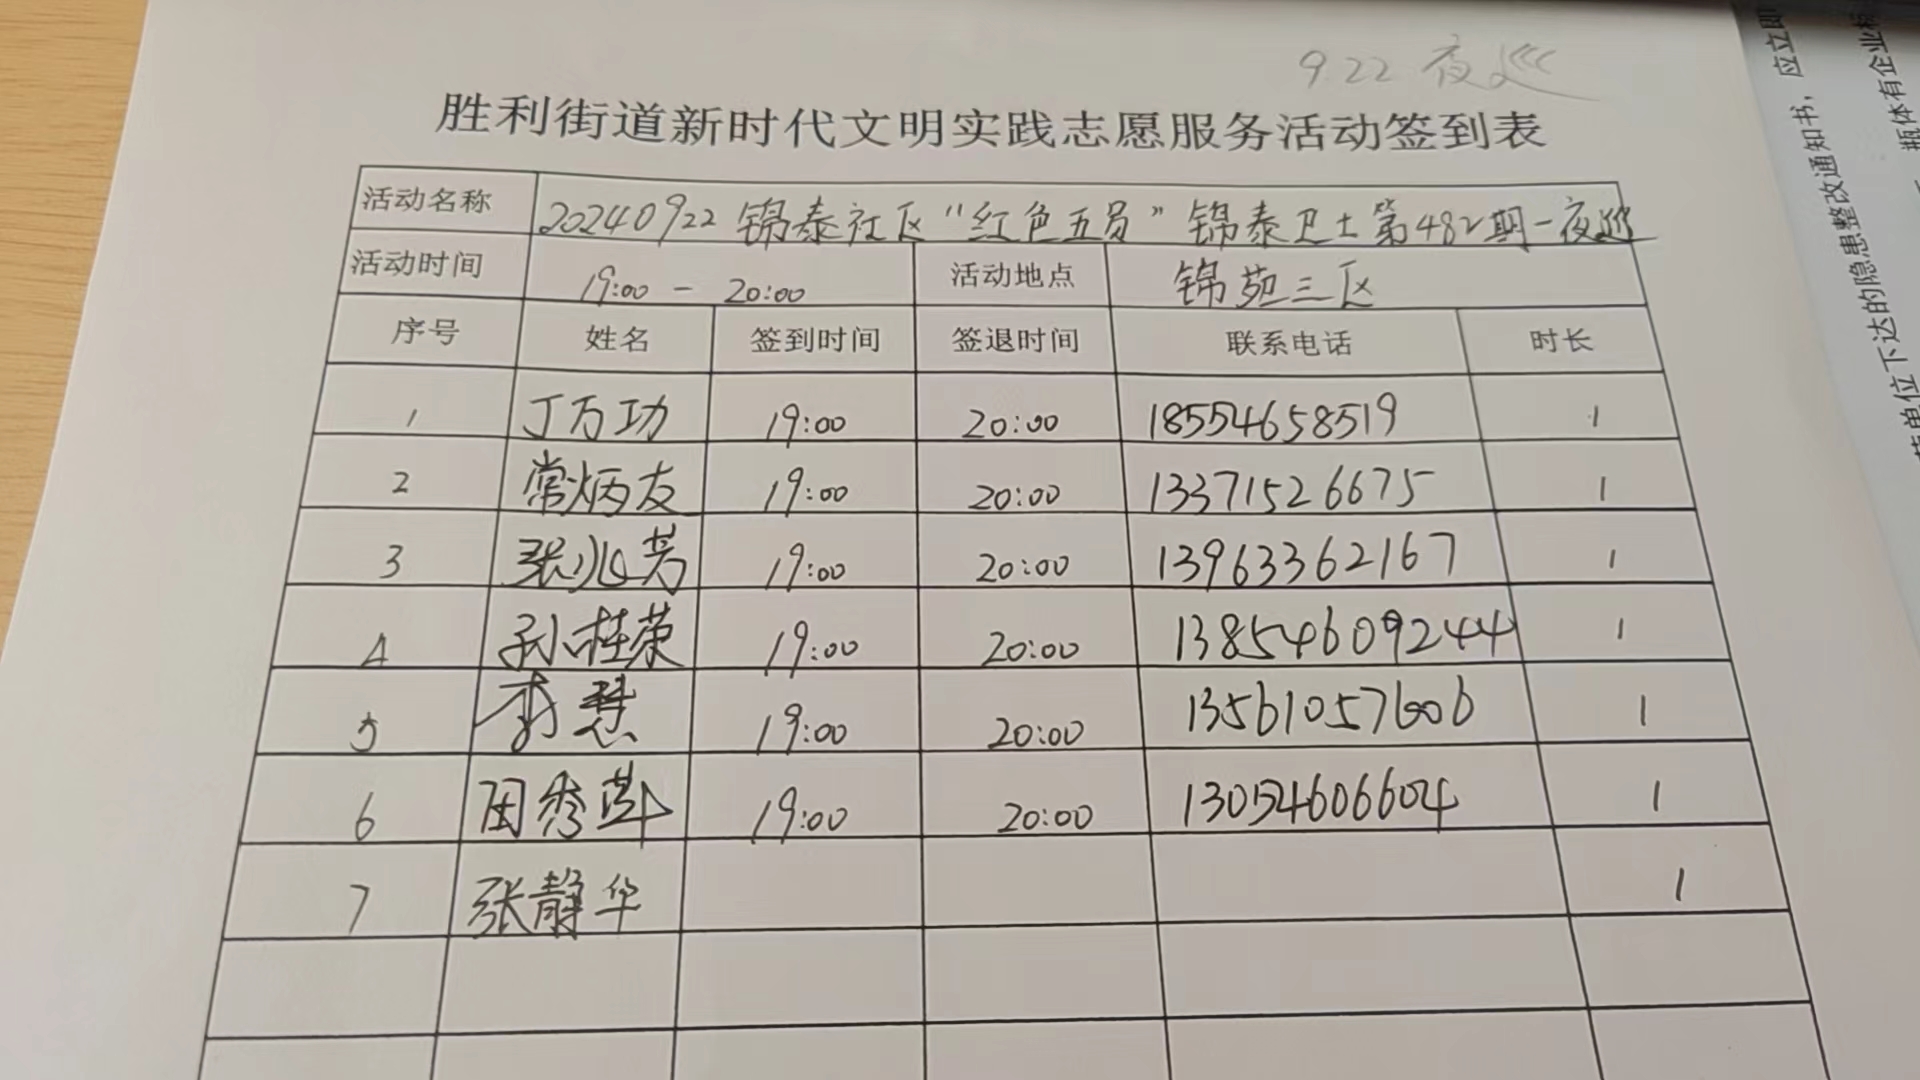 9.22 夜巡
胜利街道新时代文明实践志愿服务活动签到表
活动名称 20240922 锦泰社区“红色五员”锦泰卫士第482期-夜巡
活动时间 19:00 - 20:00 活动地点 锦苑三区
序号 姓名 签到时间 签退时间 联系电话 时长
1 丁万功 19:00 20:00 18554658519 1
2 常炳友 19:00 20:00 13371526675 1
3 张兆芳 19:00 20:00 13963362167 1
4 孙桂荣 19:00 20:00 13854609244 1
5 李慧 19:00 20:00 13561057606 1
6 田秀 19:00 20:00 13054606604 1
7 张静华 1
应立即
下达的隐患整改通知书,
瓶体有企业标
单位